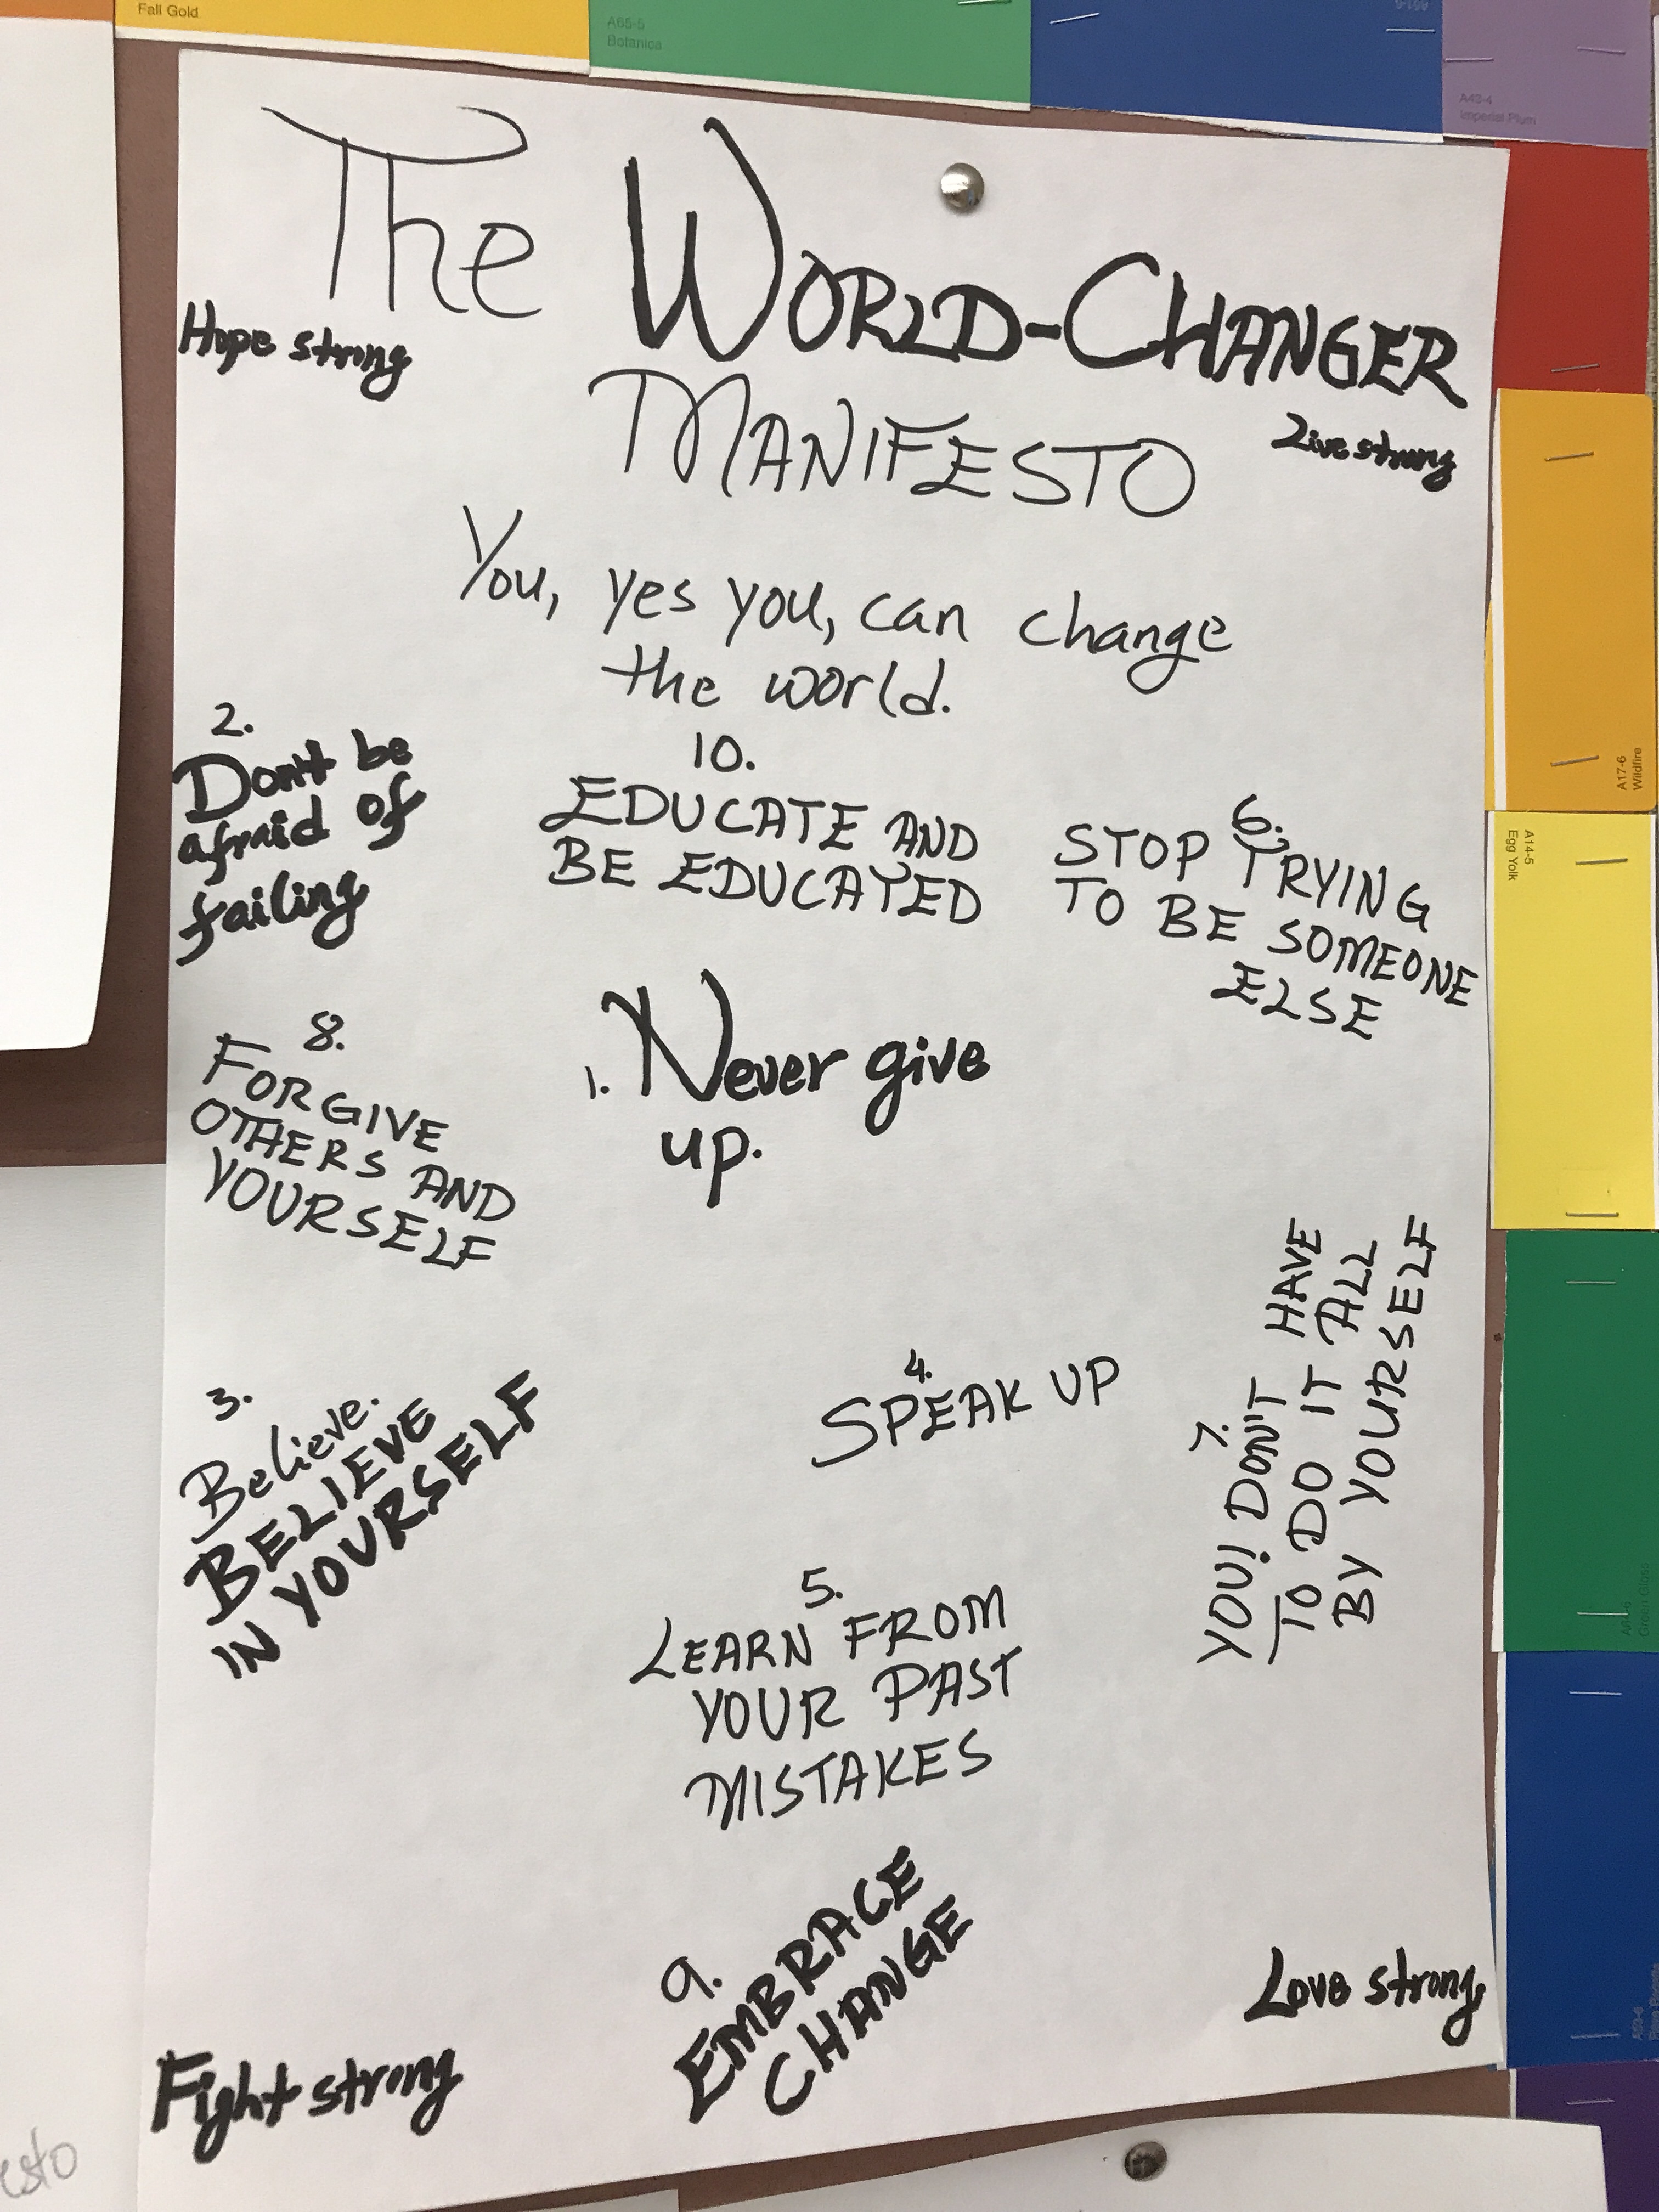 Fall Gold
A65-5
Botanica
A42-4
Imperial Plum
The WORLD-CHANGER
MANIFESTO
Hope strong
Live strong
You, yes you, can change
the world.
2.
Don't be
afraid of
failing
10.
EDUCATE AND
BE EDUCATED
6.
STOP TRYING
TO BE SOMEONE
ELSE
8.
FORGIVE
OTHERS AND
YOURSELF
1. Never give
up.
3.
Believe.
BELIEVE
IN YOURSELF
4.
SPEAK UP
7.
YOU! DON'T HAVE
TO DO IT ALL
BY YOURSELF
5.
LEARN FROM
YOUR PAST
MISTAKES
9.
EMBRACE
CHANGE
Love strong
Fight strong
A17-6
Wildfire
A14-5
Egg Yolk
esto